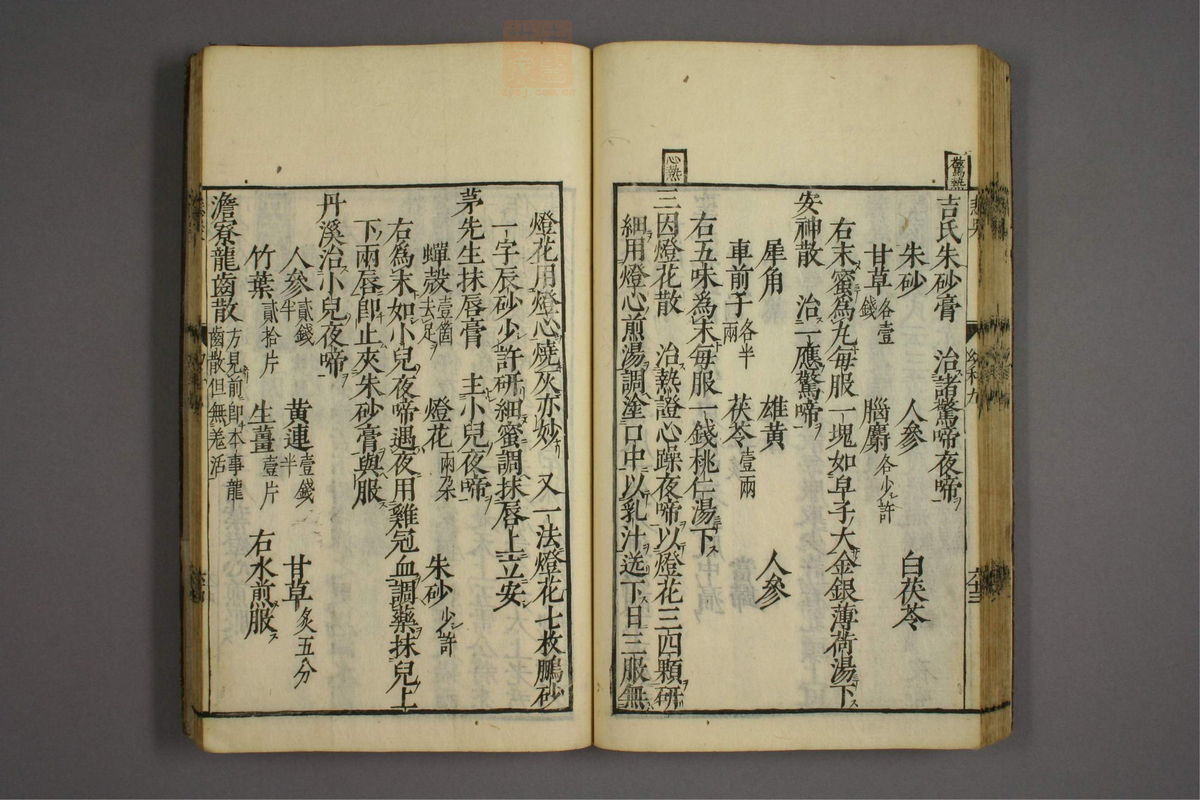 驚熱
吉氏朱砂膏 治諸驚啼夜啼
朱砂 人參 白茯苓
甘草各壹錢 腦麝各少許
右末蜜爲丸每服一塊如皁子大金銀薄荷湯下
安神散 治一應驚啼
犀角 雄黃 人參
車前子各半兩 茯苓壹兩
右五味為末每服一錢桃仁湯下
心熱
三因燈花散 治熱證心躁夜啼以燈花三四顆研
細用燈心煎湯調塗口中以乳汁送下日三服無
燈花用燈心燒灰亦妙 又一法燈花七枚鵬砂
一字辰砂少許研細蜜調抹唇上立安
茅先生抹唇膏 主小兒夜啼
蟬殼壹箇去足 燈花兩朶 朱砂少許
右為末如小兒夜啼遇夜用雞冠血調藥抹兒上
下兩唇卽止夾朱砂膏與服
丹溪治小兒夜啼
人參貳錢半 黃連壹錢半 甘草炙五分
竹葉貳拾片 生薑壹片 右水煎服
澹寮龍齒散方見前卽本事龍齒散但無羗活